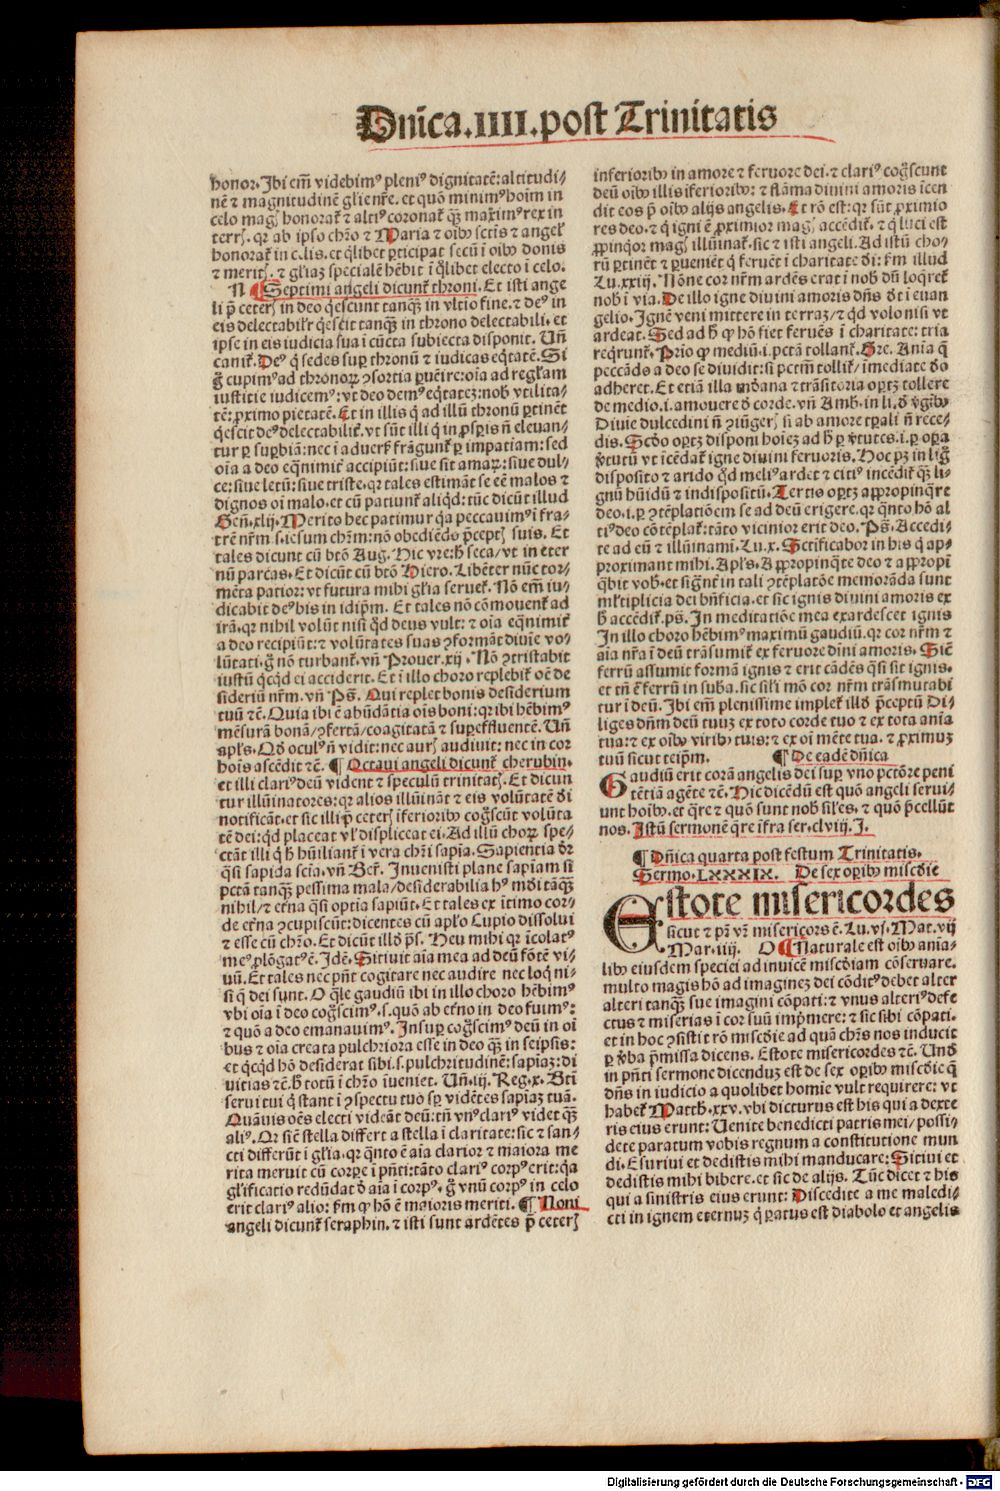 Dnīca.IIII.post Trinitatis
honor. Ibi em̄ videbimꝰ pleniꝰ dignitatē: altitudi⸗
nē ⁊ magnitudinē glie nr̄e. et quō minimꝰ hoīm in
celo magꝭ honorat̄ ⁊ altiꝰ coronat̄ qꝫ maximꝰ rex in
terrꝭ. qꝛ ab ipso chr̄o ⁊ Maria ⁊ oībꝰ sctīs ⁊ angel̄
honorat̄ in celis. et qͥlibet ꝑticipat secū ī oībꝰ donis
⁊ meritꝭ. ⁊ gl̄iaꝫ specialē hēbit ī qͦlibet electo ī celo.
N ¶ Septimi angeli dicunt̄ throni. Et isti ange
li p̄ceterꝭ in deo qͥescunt tanqꝫ in vltīo fine. ⁊ deꝰ in
eis delectabilʼr qͥescit tanqꝫ in throno delectabili. et
ipse in eis iudicia sua ī cūcta subiecta disponit. Un̄
canit̄. Deꝰ qͥ sedes suꝑ thronū ⁊ iudicas eq̄tatē. Si
g̊ cupimꝰ ad thronoꝝ ꝯsortia ꝑuēire: oīa ad regl̄am
iustitie iudicemꝰ: vt deo demꝰ eq̄tatez: nob̄ vtilita⸗
tē: ꝓximo pietatē. Et in illis qͥ ad illū thronū ꝑtinēt
qͥescit deꝰ delectabilit̄. vt sūt illi qͥ in ꝓsꝑis n̄ eleuan⸗
tur ꝑ suꝑbiā: nec ī aduersʼ frāgunt̄ ꝑ impatīam: sed
oīa a deo eq̄nimit̄ accipiūt: siue sit amaꝝ: siue dul⸗
ce: siue letū: siue triste. qꝛ tales estimāt se eē malos ⁊
dignos oī malo. et cū patiunt̄ aliqͥd: tūc dicūt illud
Gen̄. xlij. Merito hec patimur qꝛ peccauimꝰ ī fra⸗
trē nr̄m. s. iesum chr̄m: nō obediēdo p̄ceptꝭ suis. Et
tales dicunt cū btō Aug. Hic vre: h̄ seca/ vt in eter
nū parcas. Et dicūt cū btō Hiero. Libēter nūc tor⸗
mēta patior: vt futura mihi gl̄ia seruet̄. Nō em̄ iu⸗
dicabit deꝰ bis in idip̄m. Et tales nō cōmouent̄ ad
irā. qꝛ nihil volūt nisi qͦd deus vult: ⁊ oīa eq̄nimit̄
a deo recipiūt: ⁊ volūtates suas ꝯformāt diuīe vo⸗
lūtati. g̊ nō turbant̄. vn̄ Prouer. xij. Nō ꝯtristabit
iustū qͥcqͥd ei acciderit. Et ī illo choro replebit̄ oē de
sideriū nr̄m. vn̄ Ps̄. Qui replet bonis desiderium
tuū ⁊c̄. Quia ibi ē abūdātia oīs boni: qꝛ ibi hēbimꝰ
mēsurā bonā/ ꝯfertā/ coagitatā ⁊ suꝑeffluentē. Un̄
apl̄s. Qd̄ oculꝰ n̄ vidit: nec aurꝭ audiuit: nec in cor
hoīs ascēdit ⁊c̄. ¶ Octaui angeli dicunt̄ cherubin.
et illi clariꝰ deū vident ⁊ speculū trinitatꝭ. Et dicun
tur illūinatores: qꝛ alios illūināt ⁊ eis volūtatē dī
notificāt. et sic illi p̄ceterꝭ īferioribꝰ cog̊scūt volūta
tē dei: qͥd placeat vʼl displiceat ei. Ad illū choꝝ spe⸗
ctāt illi qͥ h̄ hūiliant̄ ī vera chr̄i sapīa. Sapientia dr̄
qͣsi sapida scīa. vn̄ Ber̄. Inuenisti plane sapīam si
pctā tanqꝫ pessima mala/ desiderabilia hꝰ mūdi tāqꝫ
nihil/ ⁊ et̄na qͣsi optīa sapiūt. Et tales ex ītimo cor⸗
de et̄na ꝯcupiscūt: dicentes cū apl̄o Cupio dissolui
⁊ esse cū chr̄o. Et dicūt illd̄ ps̄. Heu mihi qꝛ īcolatꝰ
meꝰ ꝓlōgatꝰ ē. Idē. Sitiuit aīa mea ad deū fōtē vi⸗
uū. Et tales nec pn̄t cogitare nec audire nec loqͥ ni⸗
si q̄ dei sunt. O qͣle gaudiū ibi in illo choro hēbimꝰ
vbi oīa ī deo cog̊scimꝰ. s. quō ab et̄no in deo fuimꝰ:
⁊ quō a deo emanauimꝰ. Insuꝑ cog̊scimꝰ deū in oī
bus ⁊ oīa creata pulchriora esse in deo qꝫ in seipsis:
et qͥcqͥd hō desiderat sibi. s. pulchritudinē: sapīaꝫ: di
uitias ⁊c̄. h̄ totū ī chr̄o īueniet. Un̄. iij. Reg. x. Bt̄i
serui tui qͥ stant ī ꝯspectu tuo sꝑ vidētes sapīaꝫ tuā.
Quāuis oēs electi videāt deū: tn̄ vnꝰ clariꝰ videt qꝫ
aliꝰ. Qꝛ sic̄ stella differt a stella ī claritate: sic ⁊ san⸗
cti differūt ī gl̄ia. qꝛ qͣnto ē aīa clarior ⁊ maiora me
rita meruit cū corꝑe ī pn̄ti: tāto clariꝰ corpꝰ erit: qꝛ
gl̄ificatio redūdat d̄ aīa ī corpꝰ. g̊ vnū corpꝰ in celo
erit clariꝰ alio: ẜm qͦ hō ē maioris meriti. ¶ Noni
angeli dicunt̄ seraphin. ⁊ isti sunt ardētes p̄ceterꝭ
inferioribꝰ in amore ⁊ feruore dei. ⁊ clariꝰ cog̊scunt
deū oībꝰ illis īferioribꝰ: ⁊ flāma diuini amoris īcen
dit eos p̄ oībꝰ alijs angelis. Et rō est: qꝛ sūt ꝓximio
res deo. ⁊ qͥ igni ē ꝓximior magꝭ accēdit̄. ⁊ qͥ luci est
ꝓpinqͦr magꝭ illūinat̄. sic ⁊ isti angeli. Ad istū cho⸗
rū ꝑtinēt ⁊ ꝑueniēt qͥ feruēt ī charitate dī: ẜm illud
Lu. xxiiij. Nōne cor nr̄m ardēs erat ī nob̄ dū loqͥret̄
nob̄ ī via. De illo igne diuini amoris dn̄s dt̄ ī euan
gelio. Ignē veni mittere in terraꝫ/ ⁊ qͥd volo nisi vt
ardeat. Sed ad h̄ ꝙ hō fiet feruēs ī charitate: tria
reqͥrunt̄. Prīo ꝙ mediū. i. pctā tollant̄. Gre. Anīa q̄
peccādo a deo se diuidit: si pctm̄ tollit̄/ īmediate do
adheret. Et etiā illa mūdana ⁊ trāsitoria oportꝫ tollere
de medio. i. amouere d̄ corde. vn̄ Amb. in li. d̄ vg̊ībꝰ
Diuie dulcedini n̄ ꝯiūgerꝭ si ab amore tꝑali n̄ rece⸗
dis. Scd̄o oportꝫ disponi hoīeꝫ ad h̄ ꝑ v̓tutes. i. ꝑ oꝑa
v̓tutū vt īcēdat̄ igne diuini feruoris. Hoc pꝫ in lig̊
disposito ⁊ arido qͦd meliꝰ ardet ⁊ citiꝰ incēdit̄ qꝫ li⸗
gnū hūidū ⁊ indispositū. Tertio oportꝫ appropinqͣre
deo. i. ꝑ ꝯtēplatiōem se ad deū erigere. qꝛ qͣnto hō al
tiꝰ deo cōtēplat̄: tāto vicinior erit deo. Ps̄. Accedi⸗
te ad eū ⁊ illūinamī. Lu. x. Sctīficabor in his qͥ ap⸗
proximant mihi. Apl̄s. Appropinqͣte deo ⁊ appropī
qͣbit vob̄. et signt̄ in tali ꝯtēplatōe memorāda sunt
ml̄tiplicia dei bn̄ficia. et sic ignis diuini amoris ex
h̄ accēdit̄. ps̄. In meditatiōe mea exardescet ignis
In illo choro hēbimꝰ maximū gaudiū. qꝛ cor nr̄m ⁊
aīa nr̄a ī deū trāsumit̄ ex feruore dīni amoris. Sic̄
ferrū assumit formā ignis ⁊ erit cādēs qͣsi sit ignis.
et tn̄ ē ferrū in suba. sic sil̄i mō cor nr̄m trāsmutabi
tur ī deū. Ibi em̄ plenissime implet̄ illd̄ p̄ceptū Di⸗
liges dn̄m deū tuuꝫ ex toto corde tuo ⁊ ex tota anīa
tua: ⁊ ex oībꝰ viribꝰ tuis: ⁊ ex oī mēte tua. ⁊ ꝓximuꝫ
tuū sicut teip̄m. ¶ De eadē dn̄ica
Gaudiū erit corā angelis dei suꝑ vno pctōre peni
tētiā agēte ⁊c̄. Hic dicēdū est quō angeli serui⸗
unt hoībꝰ. et qͣre ⁊ quō sunt nob̄ sil̄es. ⁊ quō p̄cellūt
nos. Istū sermonē qͣre īfra ser. clviij. I.
¶ Dn̄ica quarta post festum Trinitatis.
Sermo. LXXXIX. De sex oꝑibꝰ mise̅die
Estote misericordes
sicut ⁊ pr̄ vr̄ misericors ē. Lu. vj. Mat. vij
Mar. iiij. O ¶ Naturale est oībꝰ anīa⸗
libꝰ eiusdem speciei ad inuicē misc̄diam cōseruare.
multo magis hō ad imaginez dei cōditꝰ debet alter
alteri tanqꝫ sue imagini cōpati: ⁊ vnus alteriꝰ defe
ctus ⁊ miserias ī cor suū imp̄mere: ⁊ sic sibi cōpati.
et in hoc ꝯsistit rō misc̄die ad quā chr̄s nos inducit
ꝑ v̓ba p̄missa dicens. Estote misericordes ⁊c̄. Und̄
in pn̄ti sermone dicenduꝫ est de sex oꝑibꝰ misc̄die qͥ
dn̄s in iudicio a quolibet homīe vult requirere: vt
habet̄ Matth. xxv. vbi dicturus est his qui a dexte
ris eius erunt: Uenite benedicti patris mei/ possi⸗
dete paratum vobis regnum a constitutione mun
di. Esuriui et dedistis mihi manducare: Sitiui et
dedistis mihi bibere. et sic de alijs. Tūc dicet ⁊ his
qui a sinistris eius erunt: Discedite a me maledi⸗
cti in ignem eternuꝫ qͥ ꝑatus est diabolo et angelis
Digitalisierung gefördert durch die Deutsche Forschungsgemeinschaft - DFG